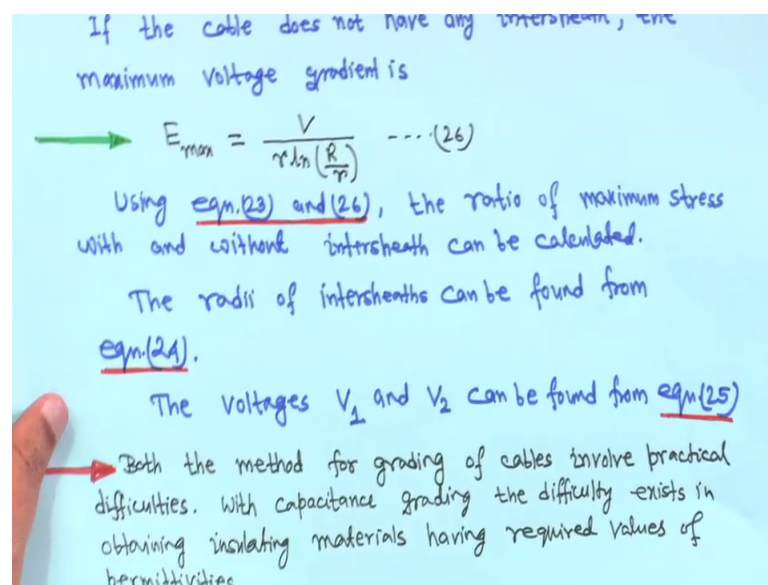 If the cable does not have any intersheath, the
maximum voltage gradient is
E_max = V / (r ln(R/r)) ----(26)
Using eqn.(23) and (26), the ratio of maximum stress
with and without intersheath can be calculated.
The radii of intersheaths can be found from
eqn.(24).
The voltages V_1 and V_2 can be found from eqn(25)
Both the method for grading of cables involve practical
difficulties. With capacitance grading the difficulty exists in
obtaining insulating materials having required values of
permittivities